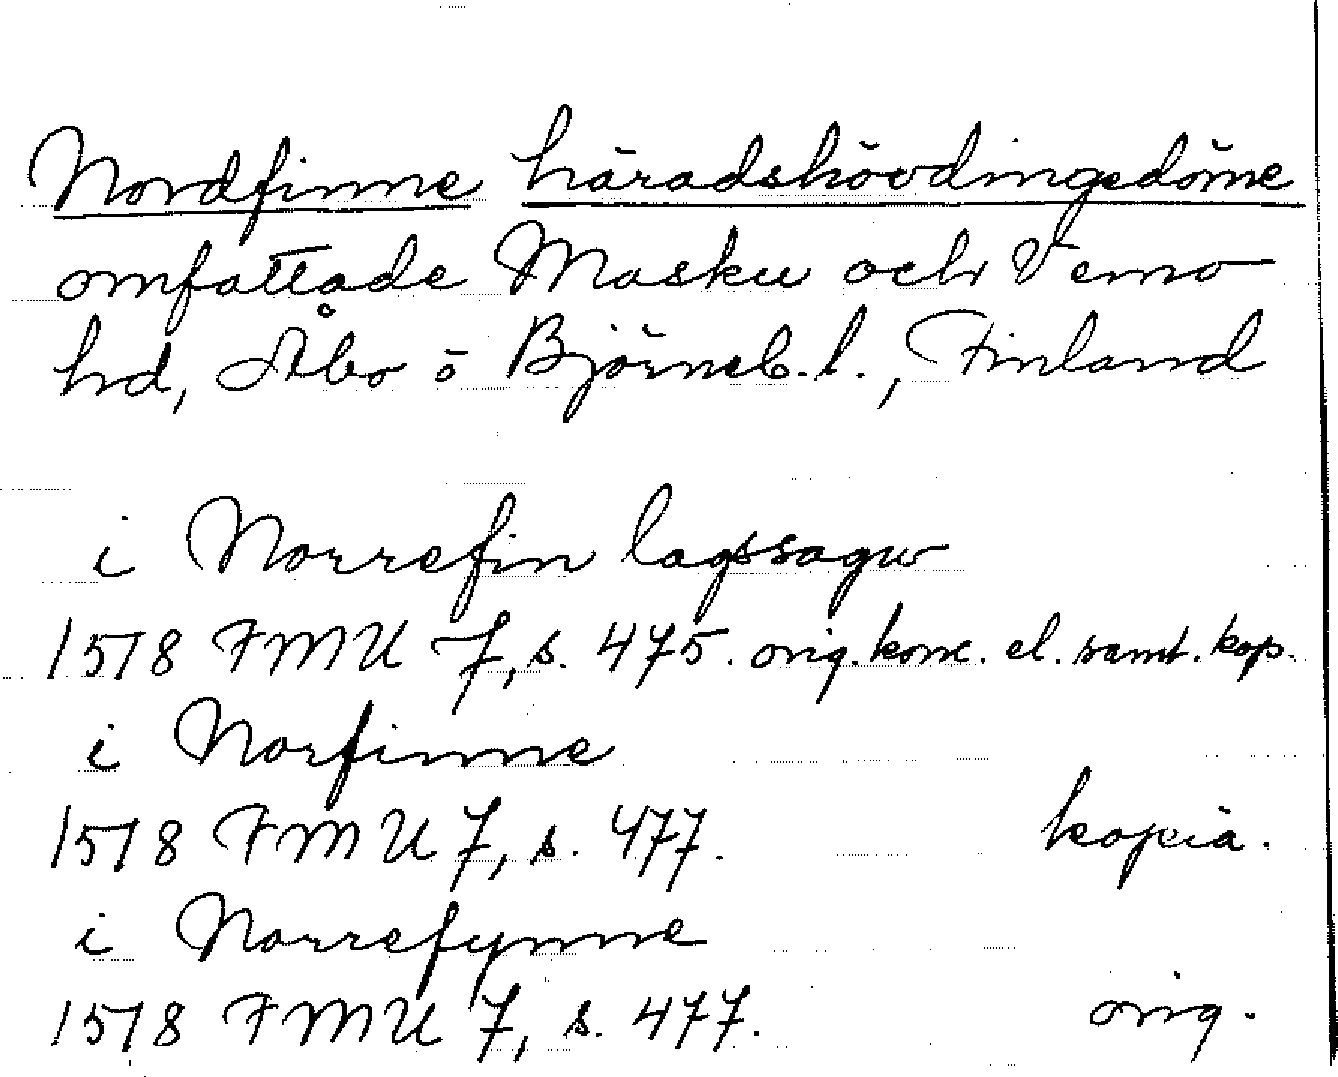 Nordfinne häradshövdingedöme
omfattade Masku och Vemo
hd, Åbo o Björneb. l., Finland
i Norrefin lagssagw
1518 FMU 7, s. 475. orig. konc. el. samt. kop.
i Norfinne
1518 FMU 7, s. 477. kopia.
i Norrefynne
1518 FMU 7, s. 477. orig.